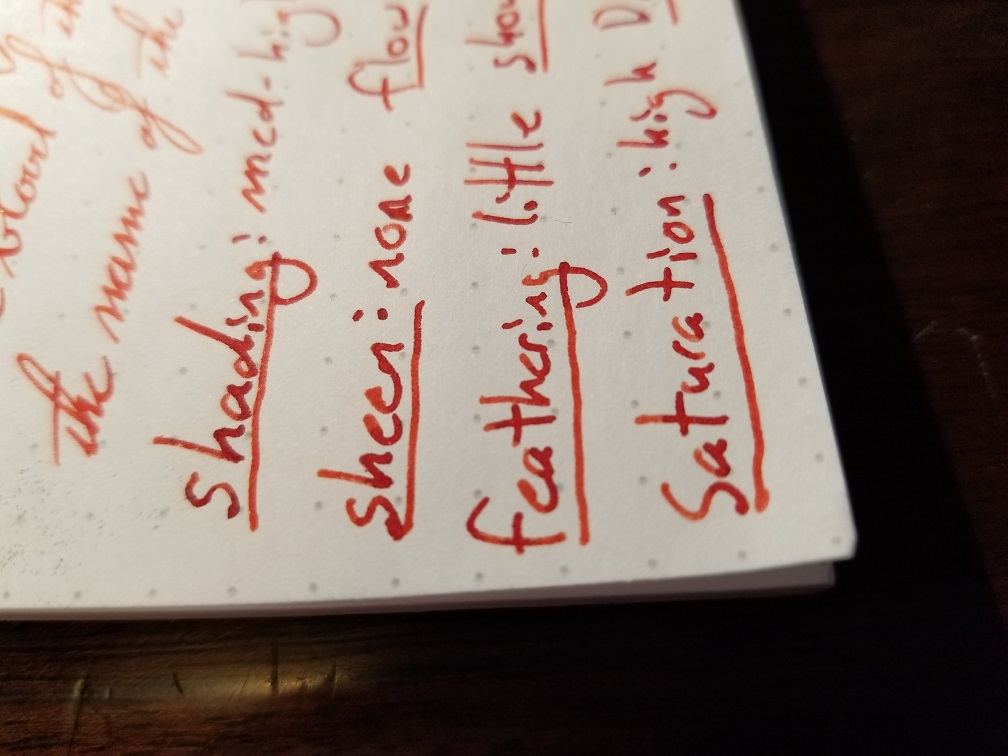 blood of the
the name of the
Shading: med-hig
Sheen: none flow
feathering: little show
Saturation: high D